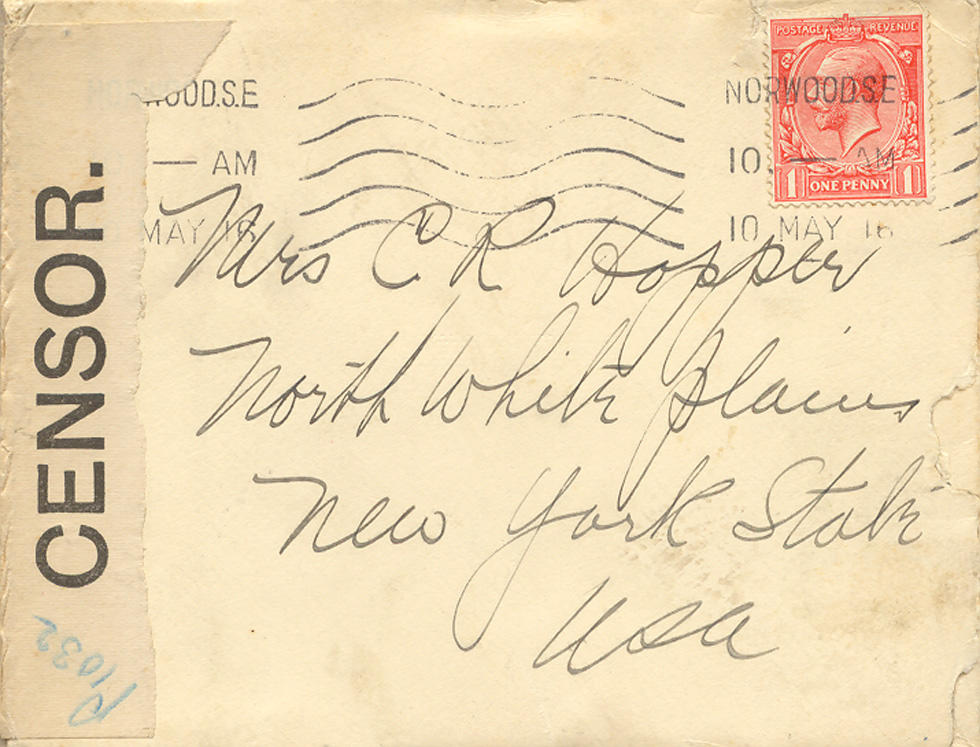 POSTAGE REVENUE
NORWOOD.S.E
NORWOOD.S.E
AM
10 — AM
1 ONE PENNY 1
MAY 16
10 MAY 16
Mrs C R Hopper
North White Plains
New York State
USA
CENSOR.